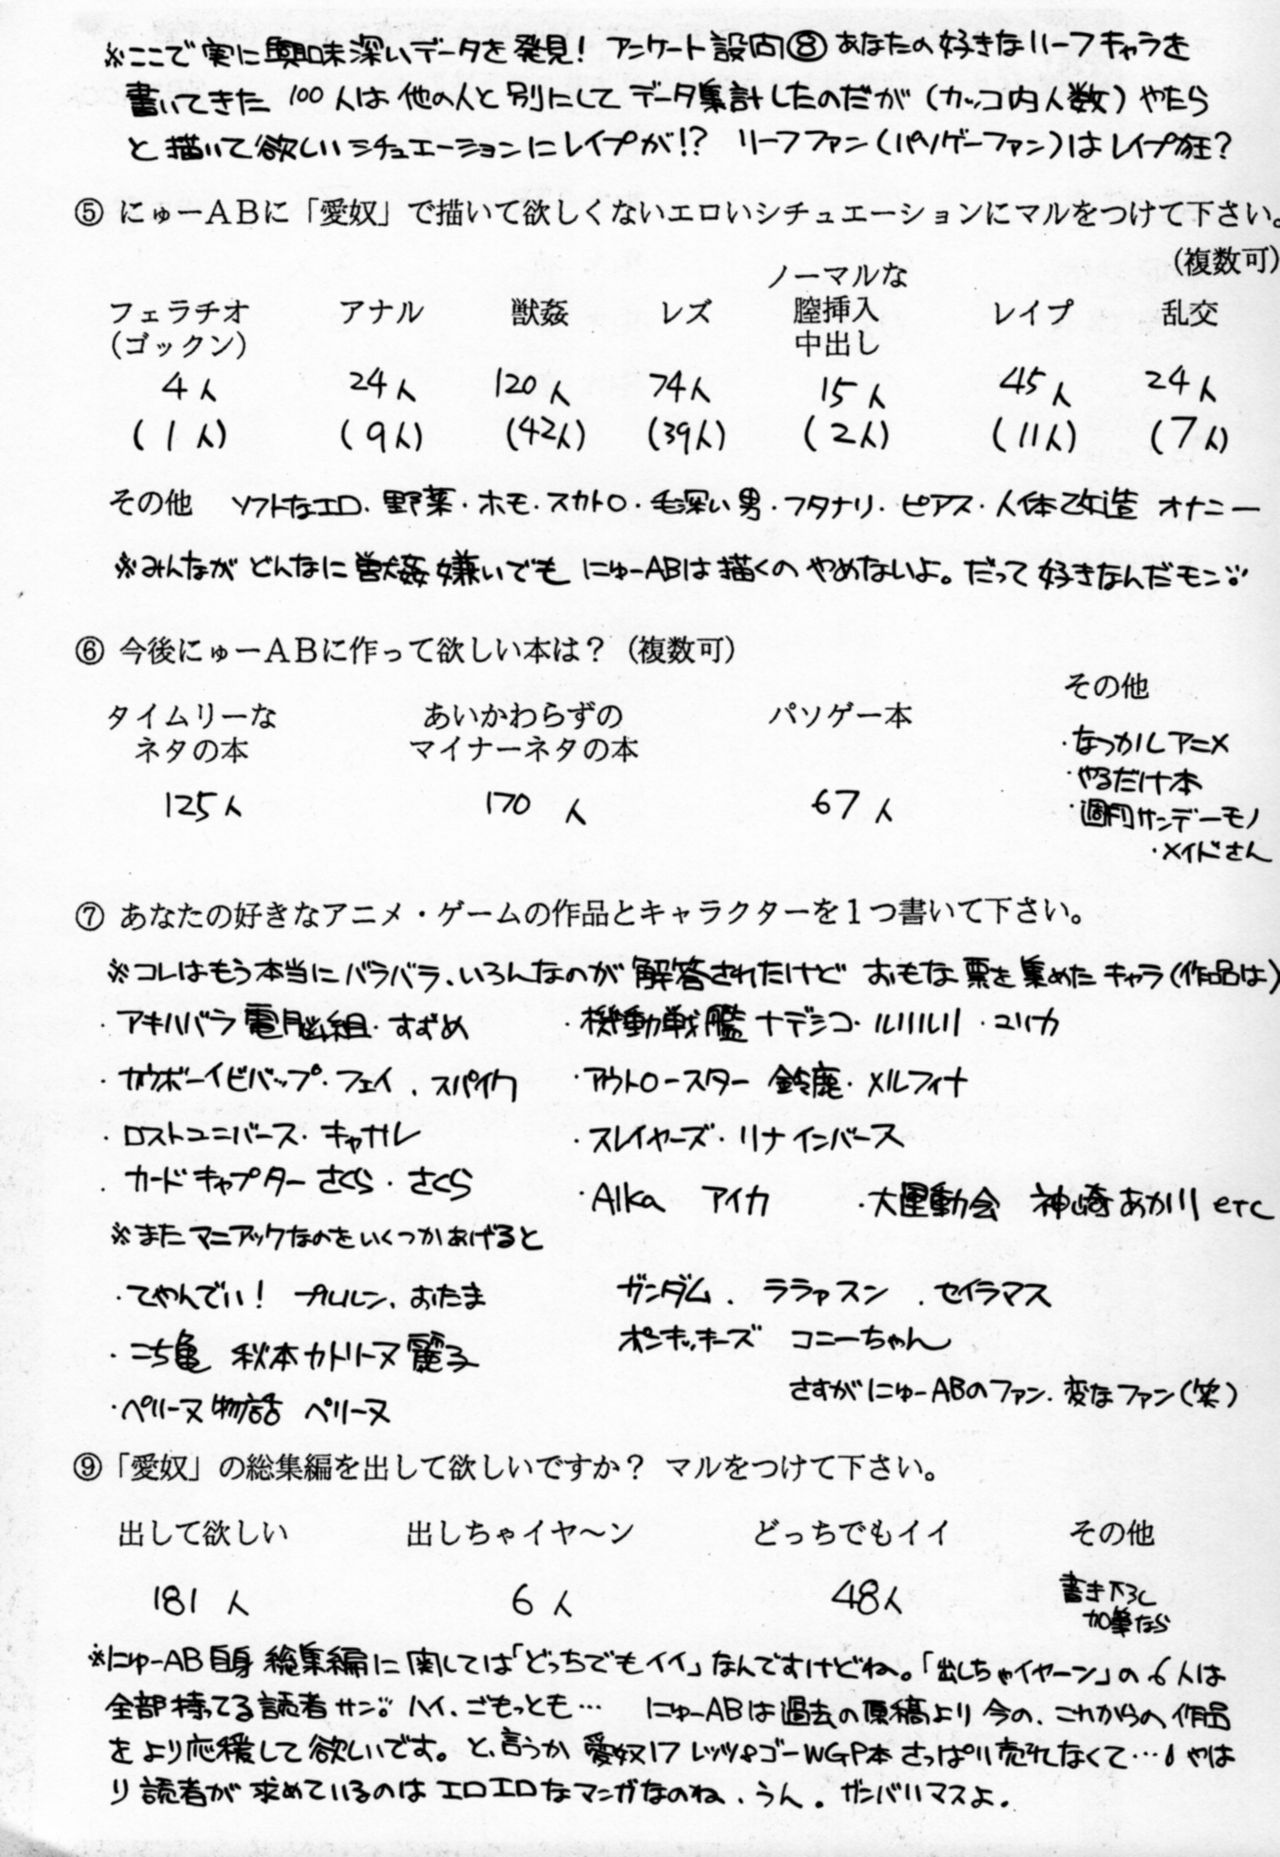 ※ここで実に興味深いデータを発見! アンケート設問⑧あなたの好きなリーフキャラを
書いてきた 100人は他の人と別にしてデータ集計したのだが(カッコ内人数)やたら
と描いて欲しいシチュエーションにレイプが!? リーフファン(パソゲーファン)はレイプ狂?
⑤ にゅーABに「愛奴」で描いて欲しくないエロいシチュエーションにマルをつけて下さい。
(複数可)
フェラチオ(ゴックン) アナル 獣姦 レズ ノーマルな膣挿入中出し レイプ 乱交
4人 24人 120人 74人 15人 45人 24人
(1人) (9人) (42人) (39人) (2人) (11人) (7人)
その他 ソフトなエロ・野菜・ホモ・スカトロ・毛深い男・フタナリ・ピアス・人体改造 オナニー
※みんながどんなに獣姦嫌いでもにゅーABは描くのやめないよ。だって好きなんだモン
⑥ 今後にゅーABに作って欲しい本は?(複数可)
タイムリーなネタの本 あいかわらずのマイナーネタの本 パソゲー本 その他
125人 170人 67人
・なつかしアニメ
・やるだけ本
・週刊サンデーモノ
・メイドさん
⑦ あなたの好きなアニメ・ゲームの作品とキャラクターを1つ書いて下さい。
※コレはもう本当にバラバラ、いろんなのが解答されたけど おもな票を集めたキャラ(作品は)
・アキハバラ電脳組・すずめ ・機動戦艦ナデシコ・ルリルリ・ユリカ
・カウボーイビバップ・フェイ、スパイク ・アウトロースター 鈴鹿・メルフィナ
・ロストユニバース・キャナル ・スレイヤーズ・リナインバース
・カードキャプターさくら・さくら ・AIka アイカ ・大運動会 神崎あかり etc
※またマニアックなのをいくつかあげると
・てやんでい! プルルン、おたま ガンダム、ララァスン、セイラマス
・こち亀 秋本カトリーヌ麗子 ポンキッキーズ コニーちゃん
・ペリーヌ物語 ペリーヌ さすがにゅーABのファン、変なファン(笑)
⑨「愛奴」の総集編を出して欲しいですか? マルをつけて下さい。
出して欲しい 出しちゃイヤ〜ン どっちでもイイ その他
181人 6人 48人 書き下ろし加筆なら
※にゅーAB自身総集編に関しては「どっちでもイイ」なんですけどね。「出しちゃイヤーン」の6人は
全部持ってる読者サン。ハイ、ごもっとも… にゅーABは過去の原稿より今の、これからの作品
をより応援して欲しいです。と、言うか愛奴17 レッツ&ゴーWGP本さっぱり売れなくて…やは
り読者が求めているのはエロエロなマンガなのね、うん。ガンバリマスよ。